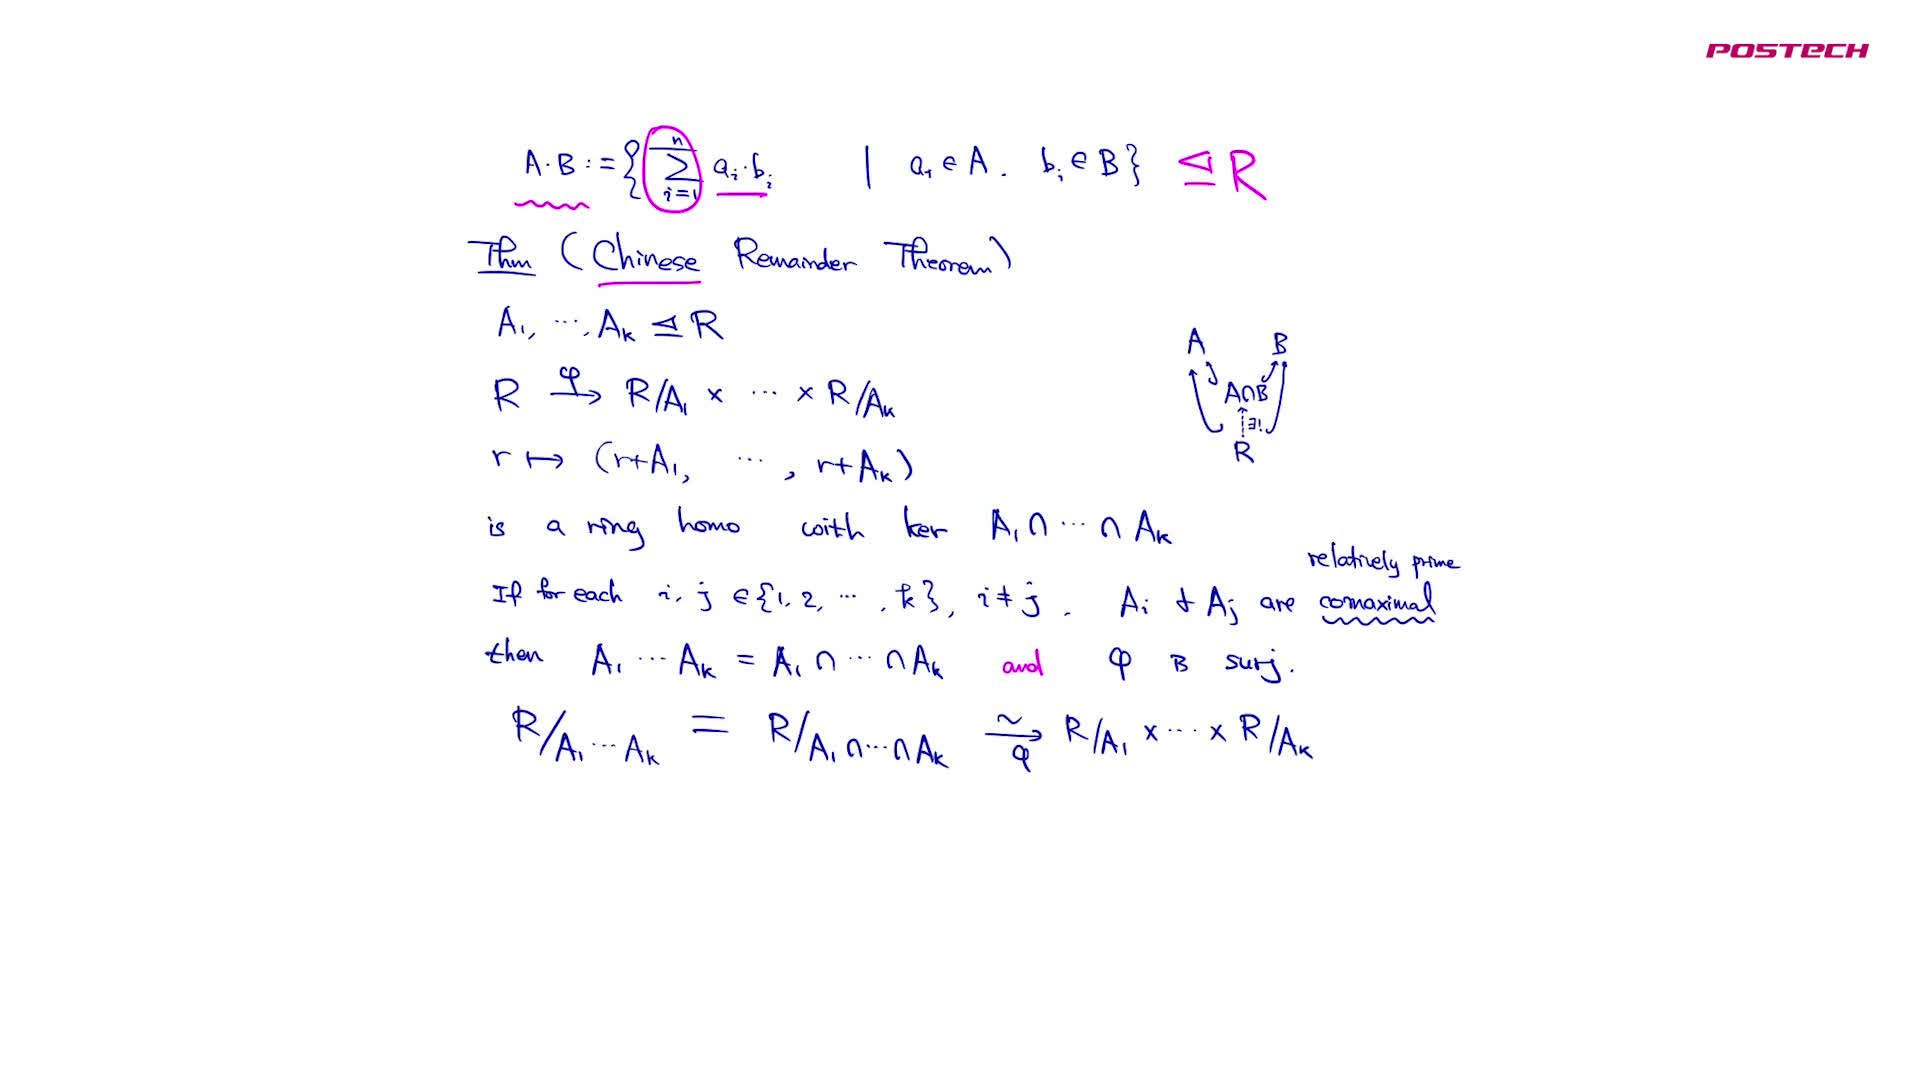 POSTECH
A·B := { \sum_{i=1}^{n} a_i·b_i | a_i ∈ A. b_i ∈ B } ⊴ R
Thm (Chinese Remainder Theorem)
A_1, ···, A_k ⊴ R
R \xrightarrow{φ} R/A_1 × ··· × R/A_k
r ↦ (r+A_1, ··· , r+A_k)
A B
A∩B
∃!
R
is a ring homo with ker A_1 ∩ ··· ∩ A_k
relatively prime
If for each i, j ∈ {1, 2, ··· , k}, i ≠ j . A_i & A_j are comaximal
then A_1 ··· A_k = A_1 ∩ ··· ∩ A_k and φ is surj.
R/A_1 ··· A_k = R/A_1 ∩ ··· ∩ A_k \xrightarrow[φ]{∼} R/A_1 × ··· × R/A_k